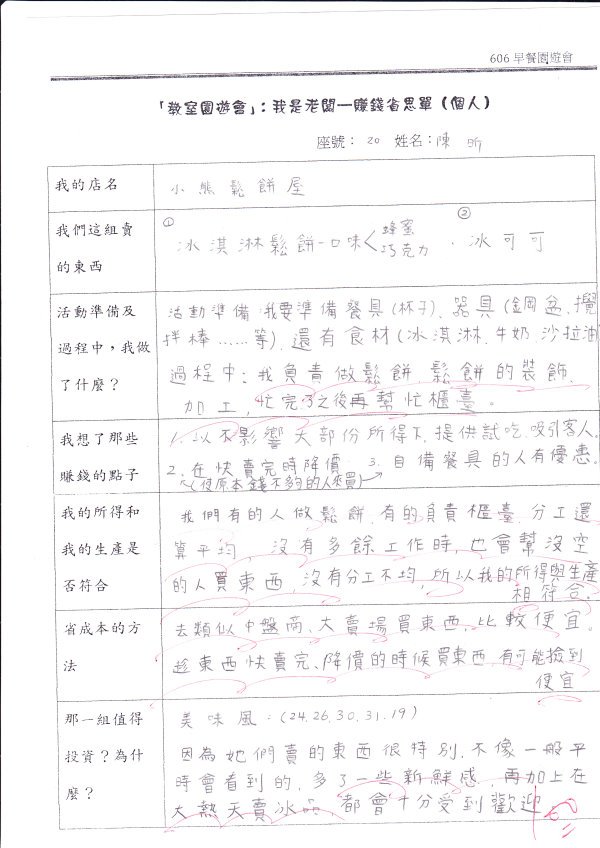 606 早餐園遊會
「教室園遊會」:我是老闆—賺錢省思單(個人)
座號: 20 姓名:陳 昕
我的店名
小熊鬆餅屋
我們這組賣
的東西
① ②
冰淇淋鬆餅-口味< 蜂蜜 巧克力 . 冰可可
活動準備及
過程中,我做
了什麼?
活動準備:我要準備餐具(杯子)、器具(鋼盆、攪
拌棒……等)、還有食材(冰淇淋、牛奶、沙拉油
過程中:我負責做鬆餅、鬆餅的裝飾、
加工,忙完了之後再幫忙櫃臺。
我想了那些
賺錢的點子
1.以不影響大部份所得下,提供試吃,吸引客人。
2.在快賣完時降價 3.自備餐具的人有優惠。
(使原本錢不夠的人來買)
我的所得和
我的生產是
否符合
我們有的人做鬆餅 有的負責櫃臺,分工還
算平均 沒有多餘工作時,也會幫沒空
的人買東西,沒有分工不均,所以我的所得與生產
相符合.
省成本的方
法
去類似中盤商、大賣場買東西,比較便宜。
趁東西快賣完、降價的時候買東西,有可能撿到
便宜
那一組值得
投資?為什
麼?
美味風:(24.26.30.31.19)
因為她們賣的東西很特別,不像一般平
時會看到的,多了一些新鮮感,再加上在
大熱天賣冰品,都會十分受到歡迎